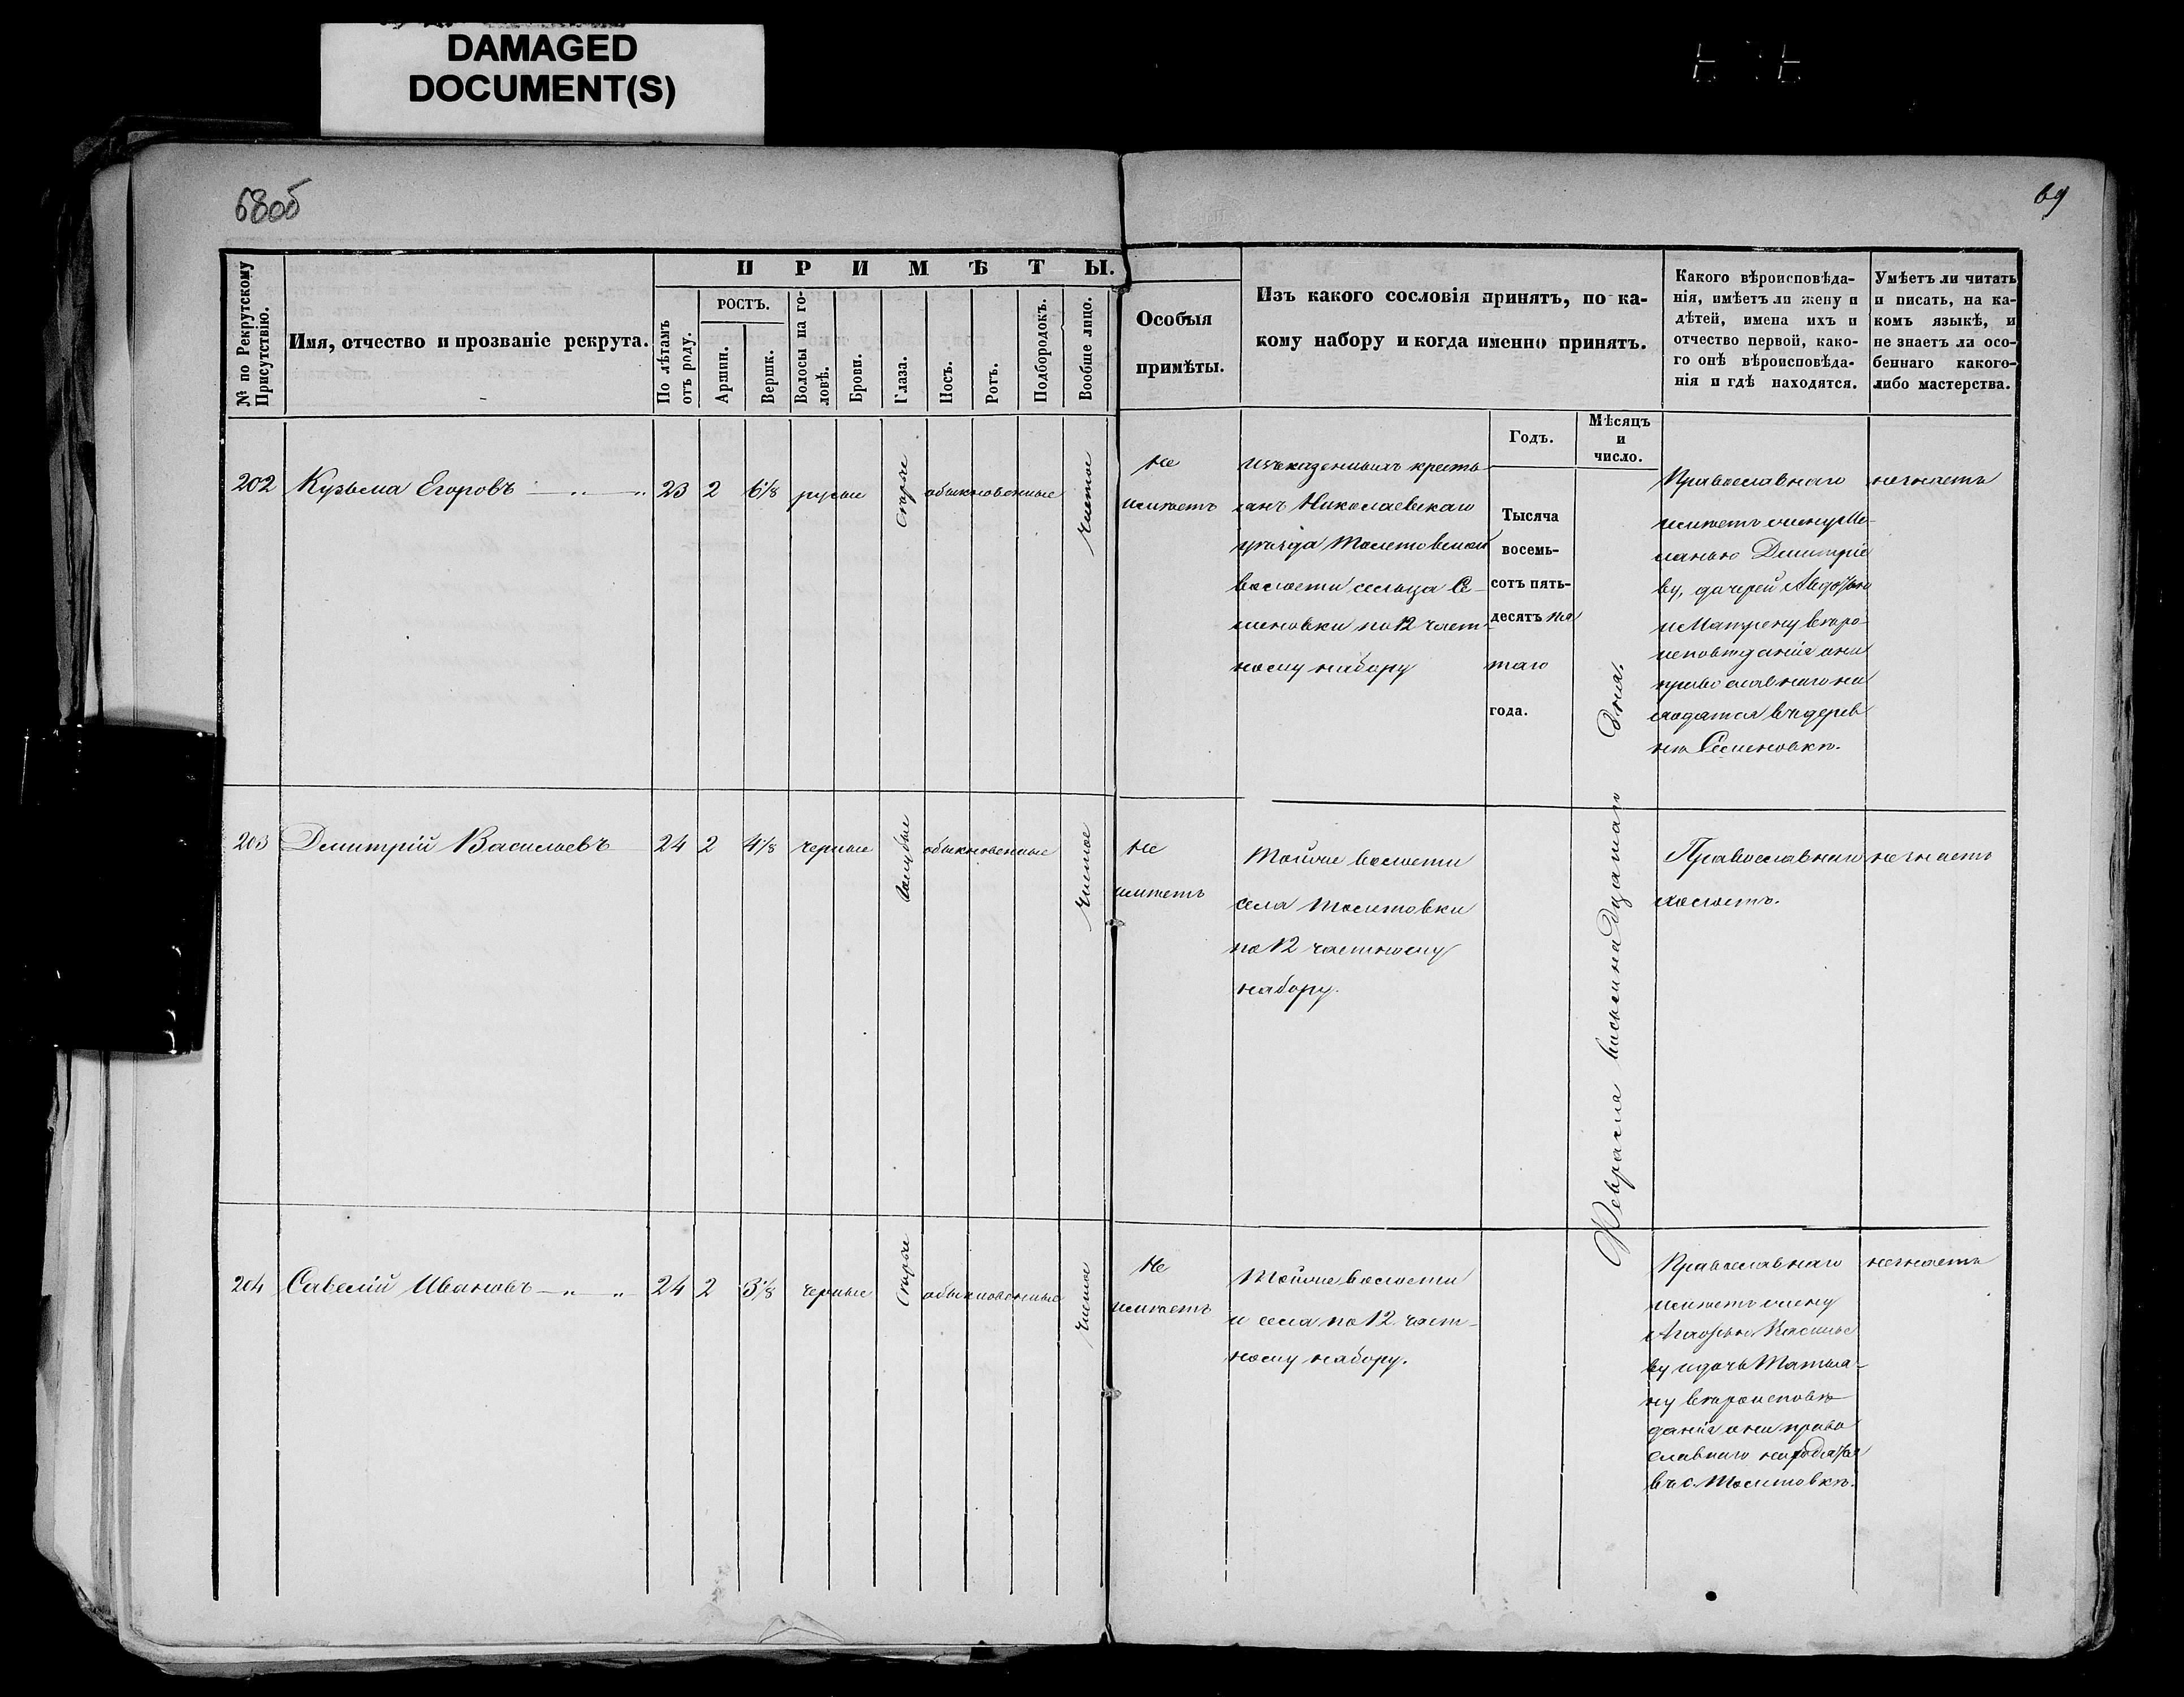 DAMAGED
DOCUMENT(S)
68об
69
№ по Рекрутскому Присутствію.
Имя, отчество и прозваніе рекрута.
ПРИМѢТЫ.
По лѣтамъ отъ роду.
РОСТЪ.
Аршин.
Вершк.
Волосы на головѣ.
Брови.
Глаза.
Носъ.
Ротъ.
Подбородокъ.
Вообще лицо.
Особыя
примѣты.
Изъ какого сословія принятъ, по ка-
кому набору и когда именно принятъ.
Годъ.
Мѣсяцъ
и
число.
Какого вѣроисповѣда-
нія, имѣетъ ли жену и
дѣтей, имена ихъ и
отчество первой, како-
го онѣ вѣроисповѣда-
нія и гдѣ находятся.
Умѣетъ ли читать
и писать, на ка-
комъ языкѣ, и
не знаетъ ли осо-
беннаго какого-
либо мастерства.
202 Кузьма Егоровъ — „ — „ 23 2 6⅛ русые Спрые обыкновенные Чистое
Не
имѣетъ
изъ казенныхъ кресть
янъ Николаевскаго
уѣзда Толстовской
волости сельца Се-
меновки по 12 част-
ному набору
Тысяча
восемь-
сотъ пять-
десятъ пя
таго
года.
Февраля восьмнадцатаго дня.
Православнаго
имѣетъ жену Ме-
ланью Дмитріе
ву, дочерей Авдотью
и Матрену вѣро-
исповѣданія они
православнаго на
ходятся въ дерев
нѣ Семеновкѣ.
незнаетъ
203 Дмитрій Васильевъ 24 2 4⅛ черные голубые обыкновенные Чистое
Не
имѣетъ
Тойже волости
села
по 12 частному
набору.
Православнаго
холостъ.
незнаетъ
204 Савелій Ивановъ — „ „ 24 2 3⅛ черные Сѣрые обыкновенные чистое
Не
имѣетъ
Тойже волости
и села по 12 част-
ному набору.
Православнаго
имѣетъ жену
Агафью Василье
ву и дочь Татья-
ну вѣроисповѣ-
данія они право
славнаго находятся
въ с.
незнаетъ